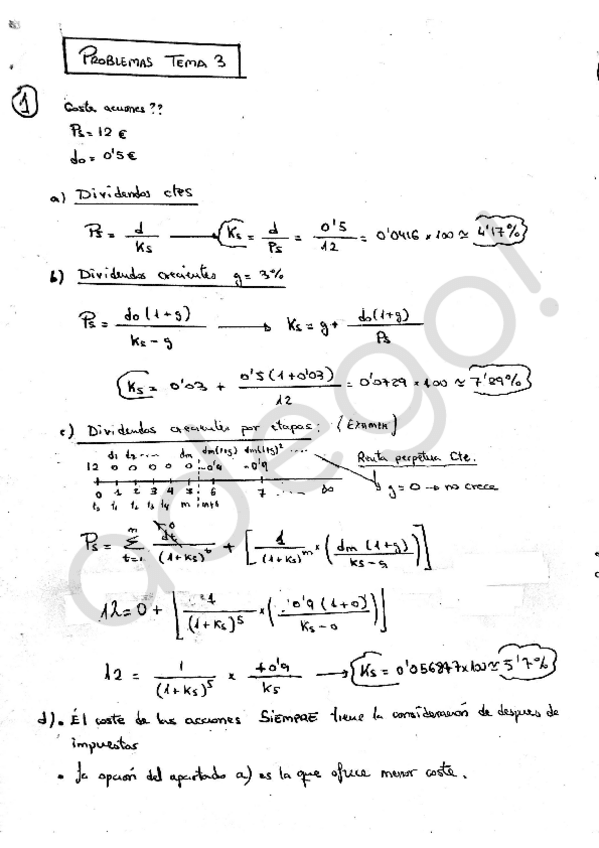 PROBLEMAS TEMA 3
1
Coste acciones??
Ps = 12 €
do = 0'5 €
a) Dividendos ctes
Ps = d / Ks → Ks = d / Ps = 0'5 / 12 = 0'0416 × 100 ≈ 4'17%
b) Dividendos crecientes g = 3%
Ps = do (1+g) / Ks - g → Ks = g + do (1+g) / Ps
Ks = 0'03 + 0'5 (1+0'03) / 12 = 0'0729 × 100 ≈ 7'29%
c) Dividendos crecientes por etapas: (EXAMEN)
d1 d2 ..... dm dm(1+g) dm(1+g)² ....
12 0 0 0 0 0 -0'9 -0'9
Renta perpetua Cte.
0 1 2 3 4 5 6 7 ..... ∞
g = 0 → no crece
m m+1
Ps = Σ dt / (1+Ks)^t + [ 1 / (1+Ks)^m × ( dm (1+g) / Ks - g ) ]
m
t=1
0
12 = 0 + [ 1 / (1+Ks)^5 × ( 0'9 (1+0) / Ks - 0 ) ]
12 = 1 / (1+Ks)^5 × 0'9 / Ks → Ks = 0'056847 × 100 ≈ 5'7%
d) • El coste de las acciones SIEMPRE tiene la consideración de despues de
impuestos
• la opción del apartado a) es la que ofrece menor coste.
adego!